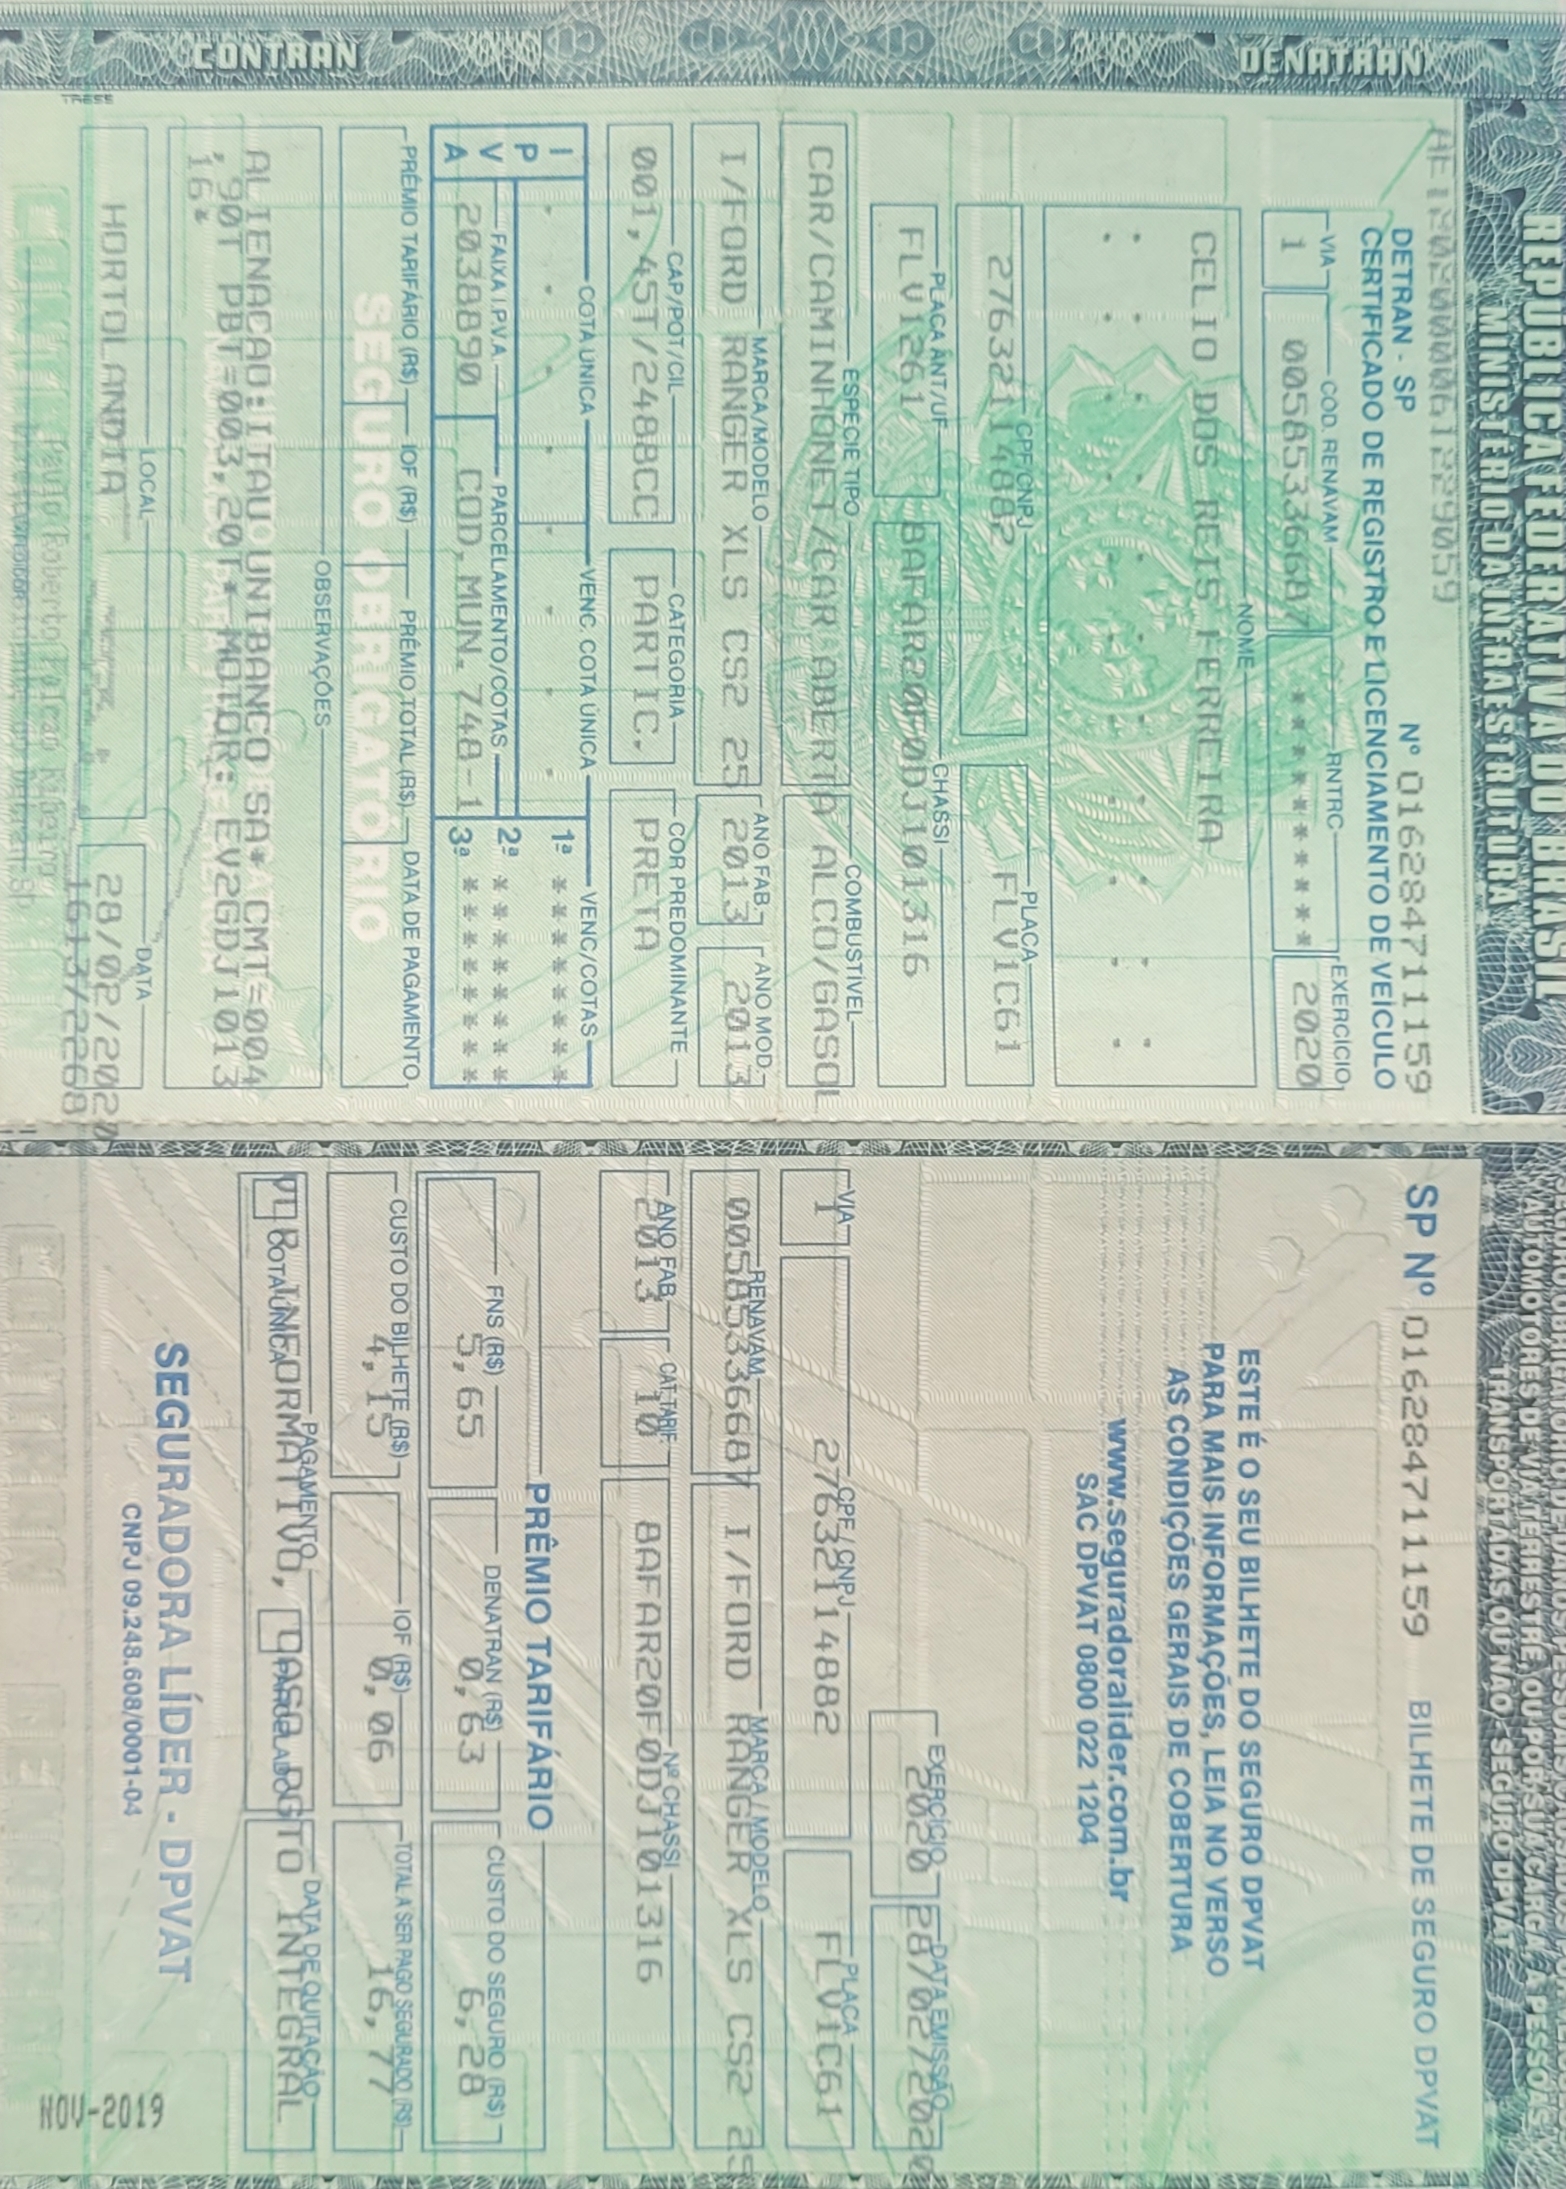 REPÚBLICA FEDERATIVA DO BRASIL
MINISTÉRIO DA INFRAESTRUTURA
CONTRAN
DENATRAN
DETRAN - SP
Nº 016284711159
CERTIFICADO DE REGISTRO E LICENCIAMENTO DE VEÍCULO
VIA COD. RENAVAM RNTRC EXERCÍCIO
1 00585336687 ******** 2020
NOME
CELIO DOS REIS FERREIRA
CPF/CNPJ PLACA
27632114882 FLV1C61
PLACA ANT/UF CHASSI
FLV1261 8AFAR20F0DJ101316
ESPÉCIE TIPO COMBUSTÍVEL
CAR/CAMINHONET/CAR ABERTA ALCO/GASOL
MARCA/MODELO ANO FAB. ANO MOD.
I/FORD RANGER XLS CS2 25 2013 2013
CAP/POT/CIL CATEGORIA COR PREDOMINANTE
001,45T/2488CC PARTIC. PRETA
IPVA
COTA ÚNICA VENC. COTA ÚNICA VENC/COTAS
1ª ********
FAIXA I.P.V.A. PARCELAMENTO/COTAS 2ª ********
2038890 COD.MUN. 748-1 3ª ********
PRÊMIO TARIFÁRIO (R$) IOF (R$) PRÊMIO TOTAL (R$) DATA DE PAGAMENTO
SEGURO OBRIGATÓRIO
OBSERVAÇÕES
ALIENACAO:ITAU UNIBANCO SA* CMT=004
,90T PBT=003,20T* MOTOR: EV2GDJ1013
16*
LOCAL DATA
HORTOLANDIA 28/02/2020
1613/2268
TRESS
SP Nº 016284711159 BILHETE DE SEGURO DPVAT
ESTE É O SEU BILHETE DO SEGURO DPVAT
PARA MAIS INFORMAÇÕES, LEIA NO VERSO
AS CONDIÇÕES GERAIS DE COBERTURA
www.seguradoralider.com.br
SAC DPVAT 0800 022 1204
EXERCÍCIO DATA EMISSÃO
2020 28/02/2020
VIA CPF / CNPJ PLACA
1 27632114882 FLV1C61
RENAVAM MARCA / MODELO
00585336687 I/FORD RANGER XLS CS2 25
ANO FAB. CAT. TARIF. Nº CHASSI
2013 10 8AFAR20F0DJ101316
PRÊMIO TARIFÁRIO
FNS (R$) DENATRAN (R$) CUSTO DO SEGURO (R$)
5,65 0,63 6,28
CUSTO DO BILHETE (R$) IOF (R$) TOTAL A SER PAGO SEGURADO (R$)
4,15 0,06 16,77
PAGAMENTO DATA DE QUITAÇÃO
COTA ÚNICA PARCELADO
VLR INFORMATIVO, CASO PGTO INTEGRAL
SEGURADORA LÍDER - DPVAT
CNPJ 09.248.608/0001-04
NOV-2019